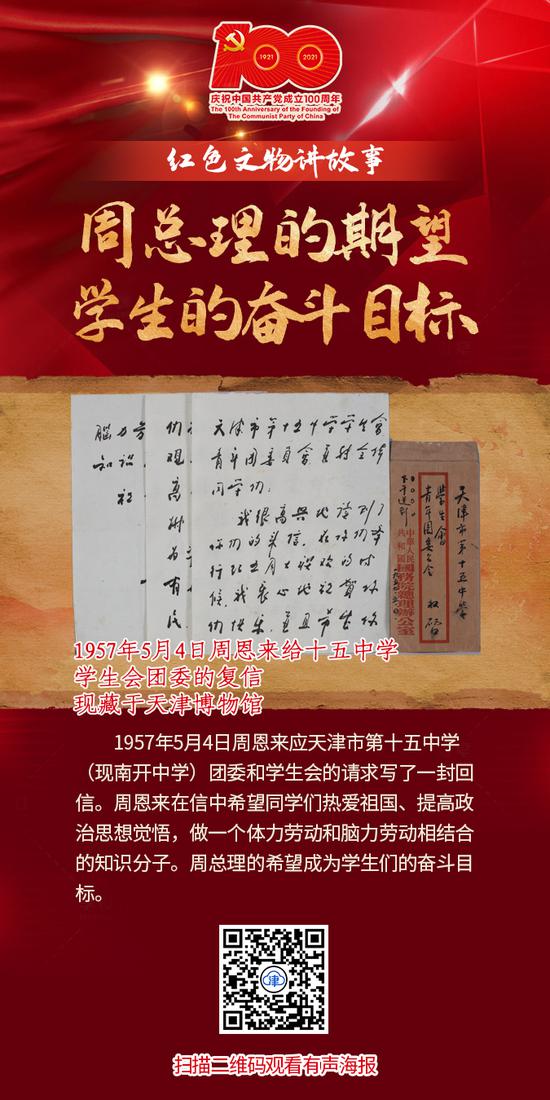 100
1921
2021
庆祝中国共产党成立100周年
The 100th Anniversary of the Founding of
The Communist Party of China
红色文物讲故事
周总理的期望
学生的奋斗目标
天津市第十五中学学生会
青年团委员会,并转全体
同学们:
我很高兴地读到了
你们的来信。在你们举
行纪念五月四日的时
候,我衷心地祝贺你
们快乐,并且希望你
们
现
高
为
有
民
脑力劳
知识
天津市第十五中学
学生会
青年团委会
收启
中华人民
共和国
国务院总理办公室
1957年5月4日周恩来给十五中学
学生会团委的复信
现藏于天津博物馆
1957年5月4日周恩来应天津市第十五中学
(现南开中学)团委和学生会的请求写了一封回
信。周恩来在信中希望同学们热爱祖国、提高政
治思想觉悟,做一个体力劳动和脑力劳动相结合
的知识分子。周总理的希望成为学生们的奋斗目
标。
津
扫描二维码观看有声海报